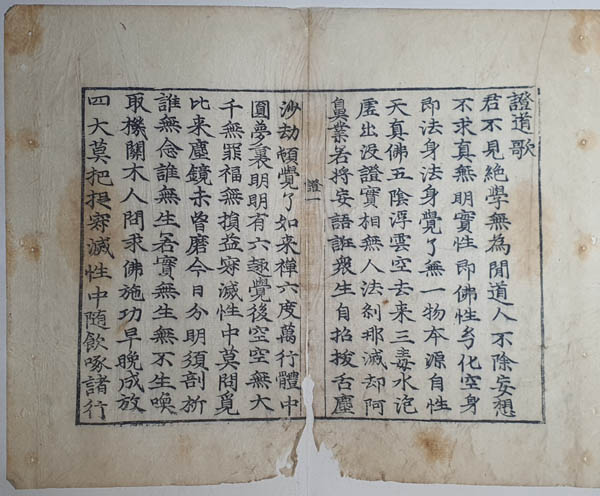 證道歌
君不見絶學無為閒道人不除妄想
不求真無明實性即佛性幻化空身
即法身法身覺了無一物本源自性
天真佛五陰浮雲空去来三毒水泡
虛出沒證實相無人法刹那滅却阿
鼻業若將妄語誑衆生自招拔舌塵
證一
沙劫頓覺了如来禪六度萬行體中
圓夢裏明明有六趣覺後空空無大
千無罪福無損益寂滅性中莫問覓
比来塵鏡未曾磨今日分明須剖析
誰無念誰無生若實無生無不生喚
取機關木人問求佛施功早晚成放
四大莫把捉寂滅性中隨飲啄諸行